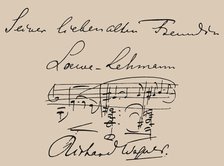 Seiner lieben alten Freundin
Loewe-Lehmann
Richard Wagner.